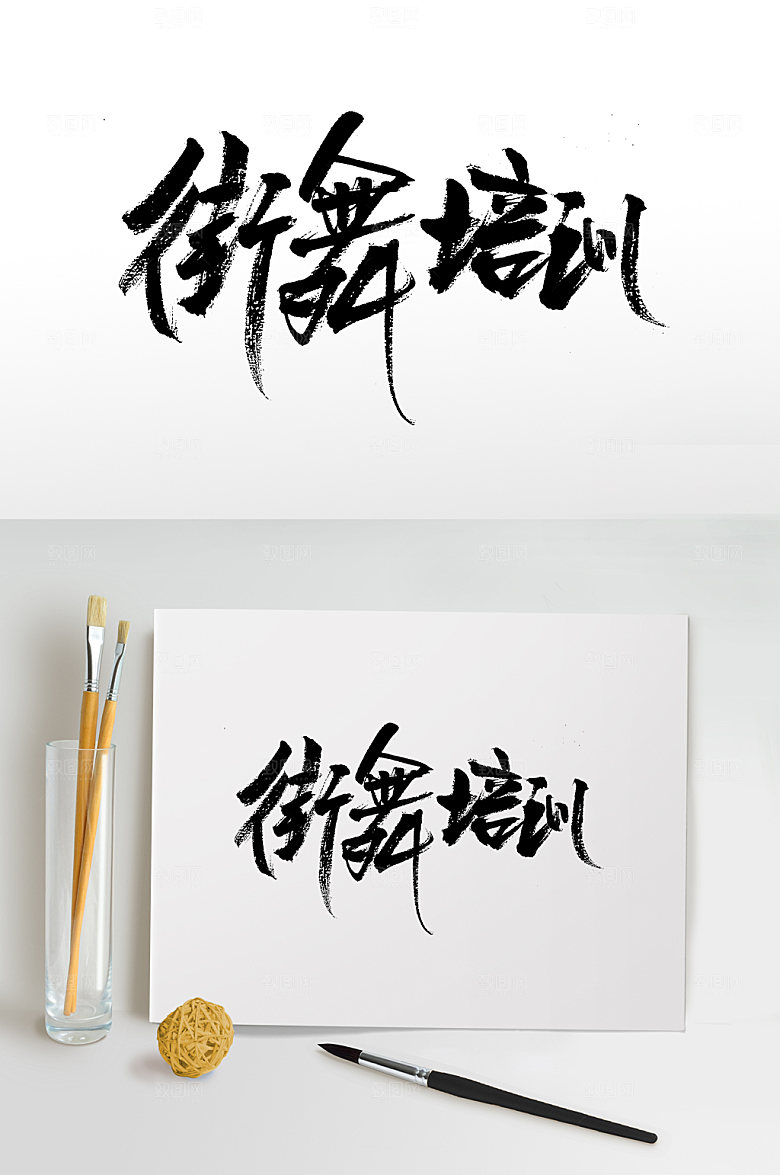 街舞培训
街舞培训